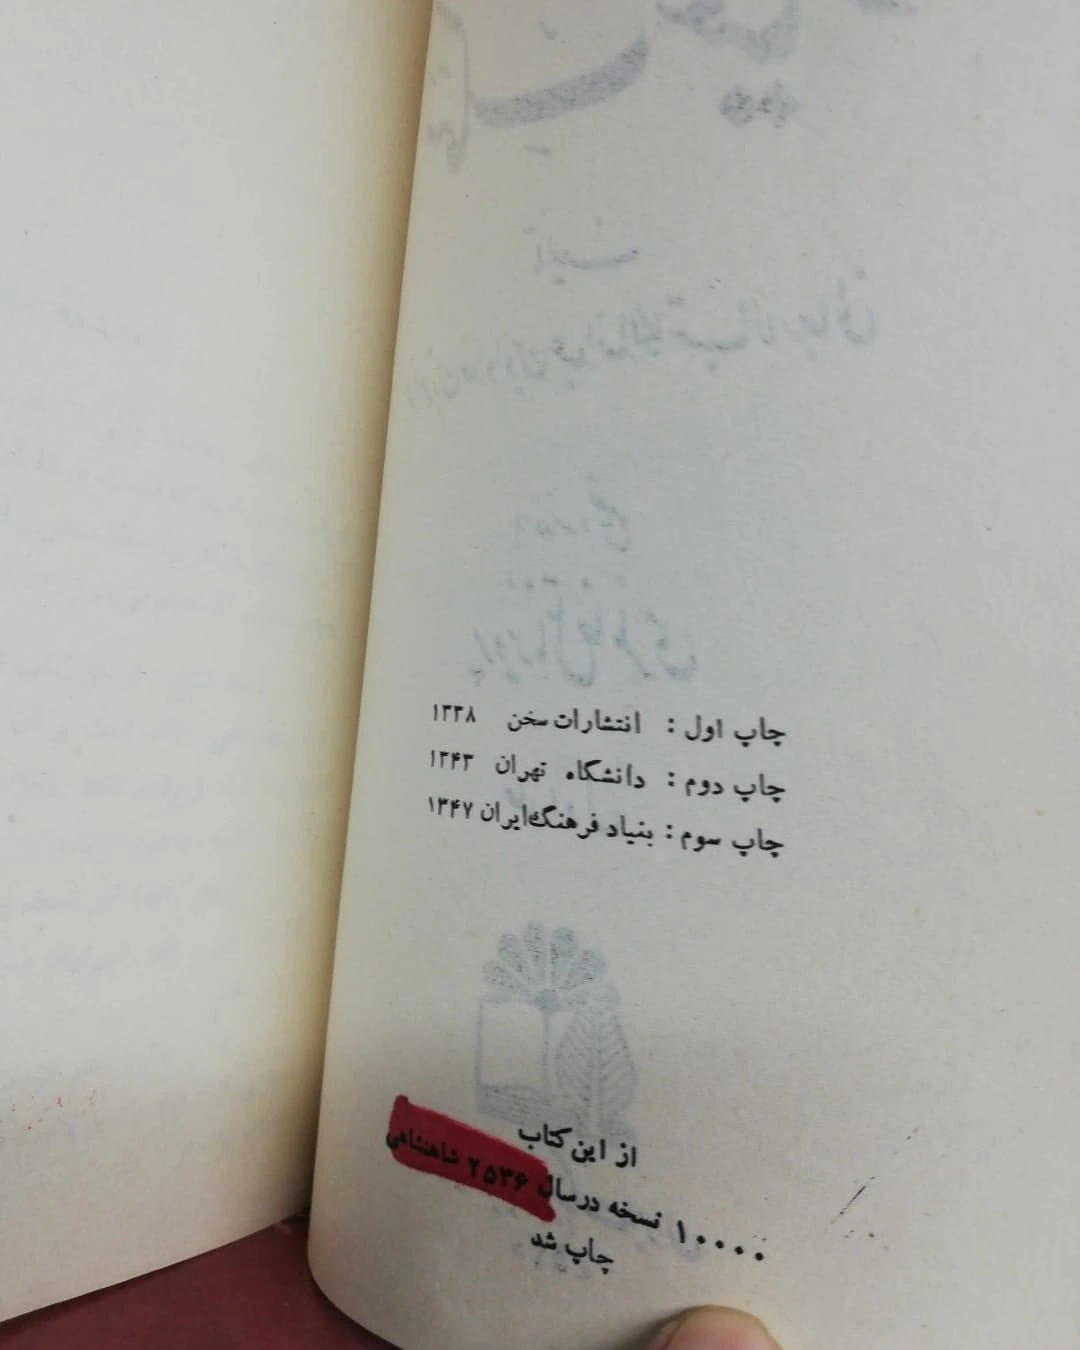 چاپ اول : انتشارات سخن ۱۳۳۸
چاپ دوم : دانشگاه تهران ۱۳۴۳
چاپ سوم : بنیاد فرهنگ‌ایران ۱۳۴۷
از این کتاب
۱۰۰۰۰ نسخه در سال ۲۵۳۶ شاهنشاهی
چاپ شد